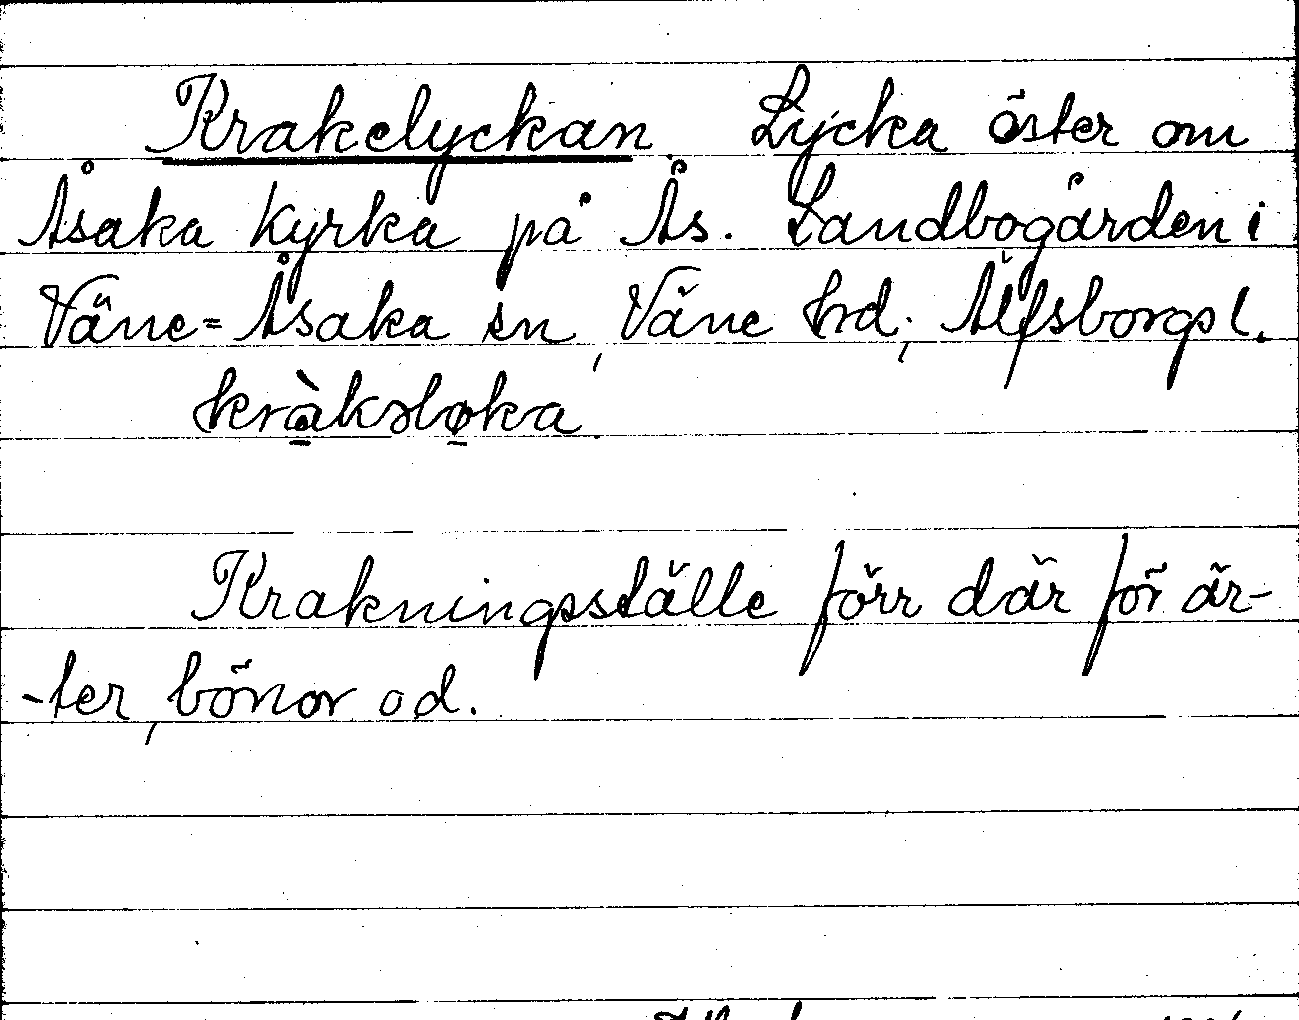 Krakelyckan. Lycka öster om
Åsaka kyrka på Ås. Landbogården i
Väne-Åsaka sn, Väne hrd; Älfsborgs l.
kràkəløka
Krakningsställe förr där för är-
-ter, bönor od.